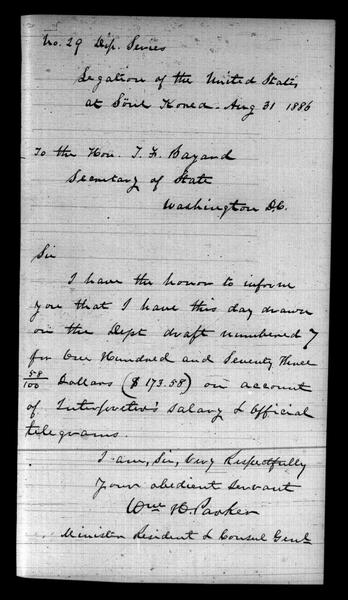 No. 29 Dip. Series
Legation of the United States
at Söul Korea - Aug 31 1886
To the Hon. T. F. Bayard
Secretary of State
Washington D.C.
Sir
I have the honor to inform
you that I have this day drawn
on the Dept draft numbered 7
for One Hundred and Seventy three
58/100 Dollars ($173.58) on account
of Interpreter's salary & Official
telegrams.
I am, Sir, Very Respectfully
Your obedient servant
Wm H Parker
Minister Resident & Consul Genl